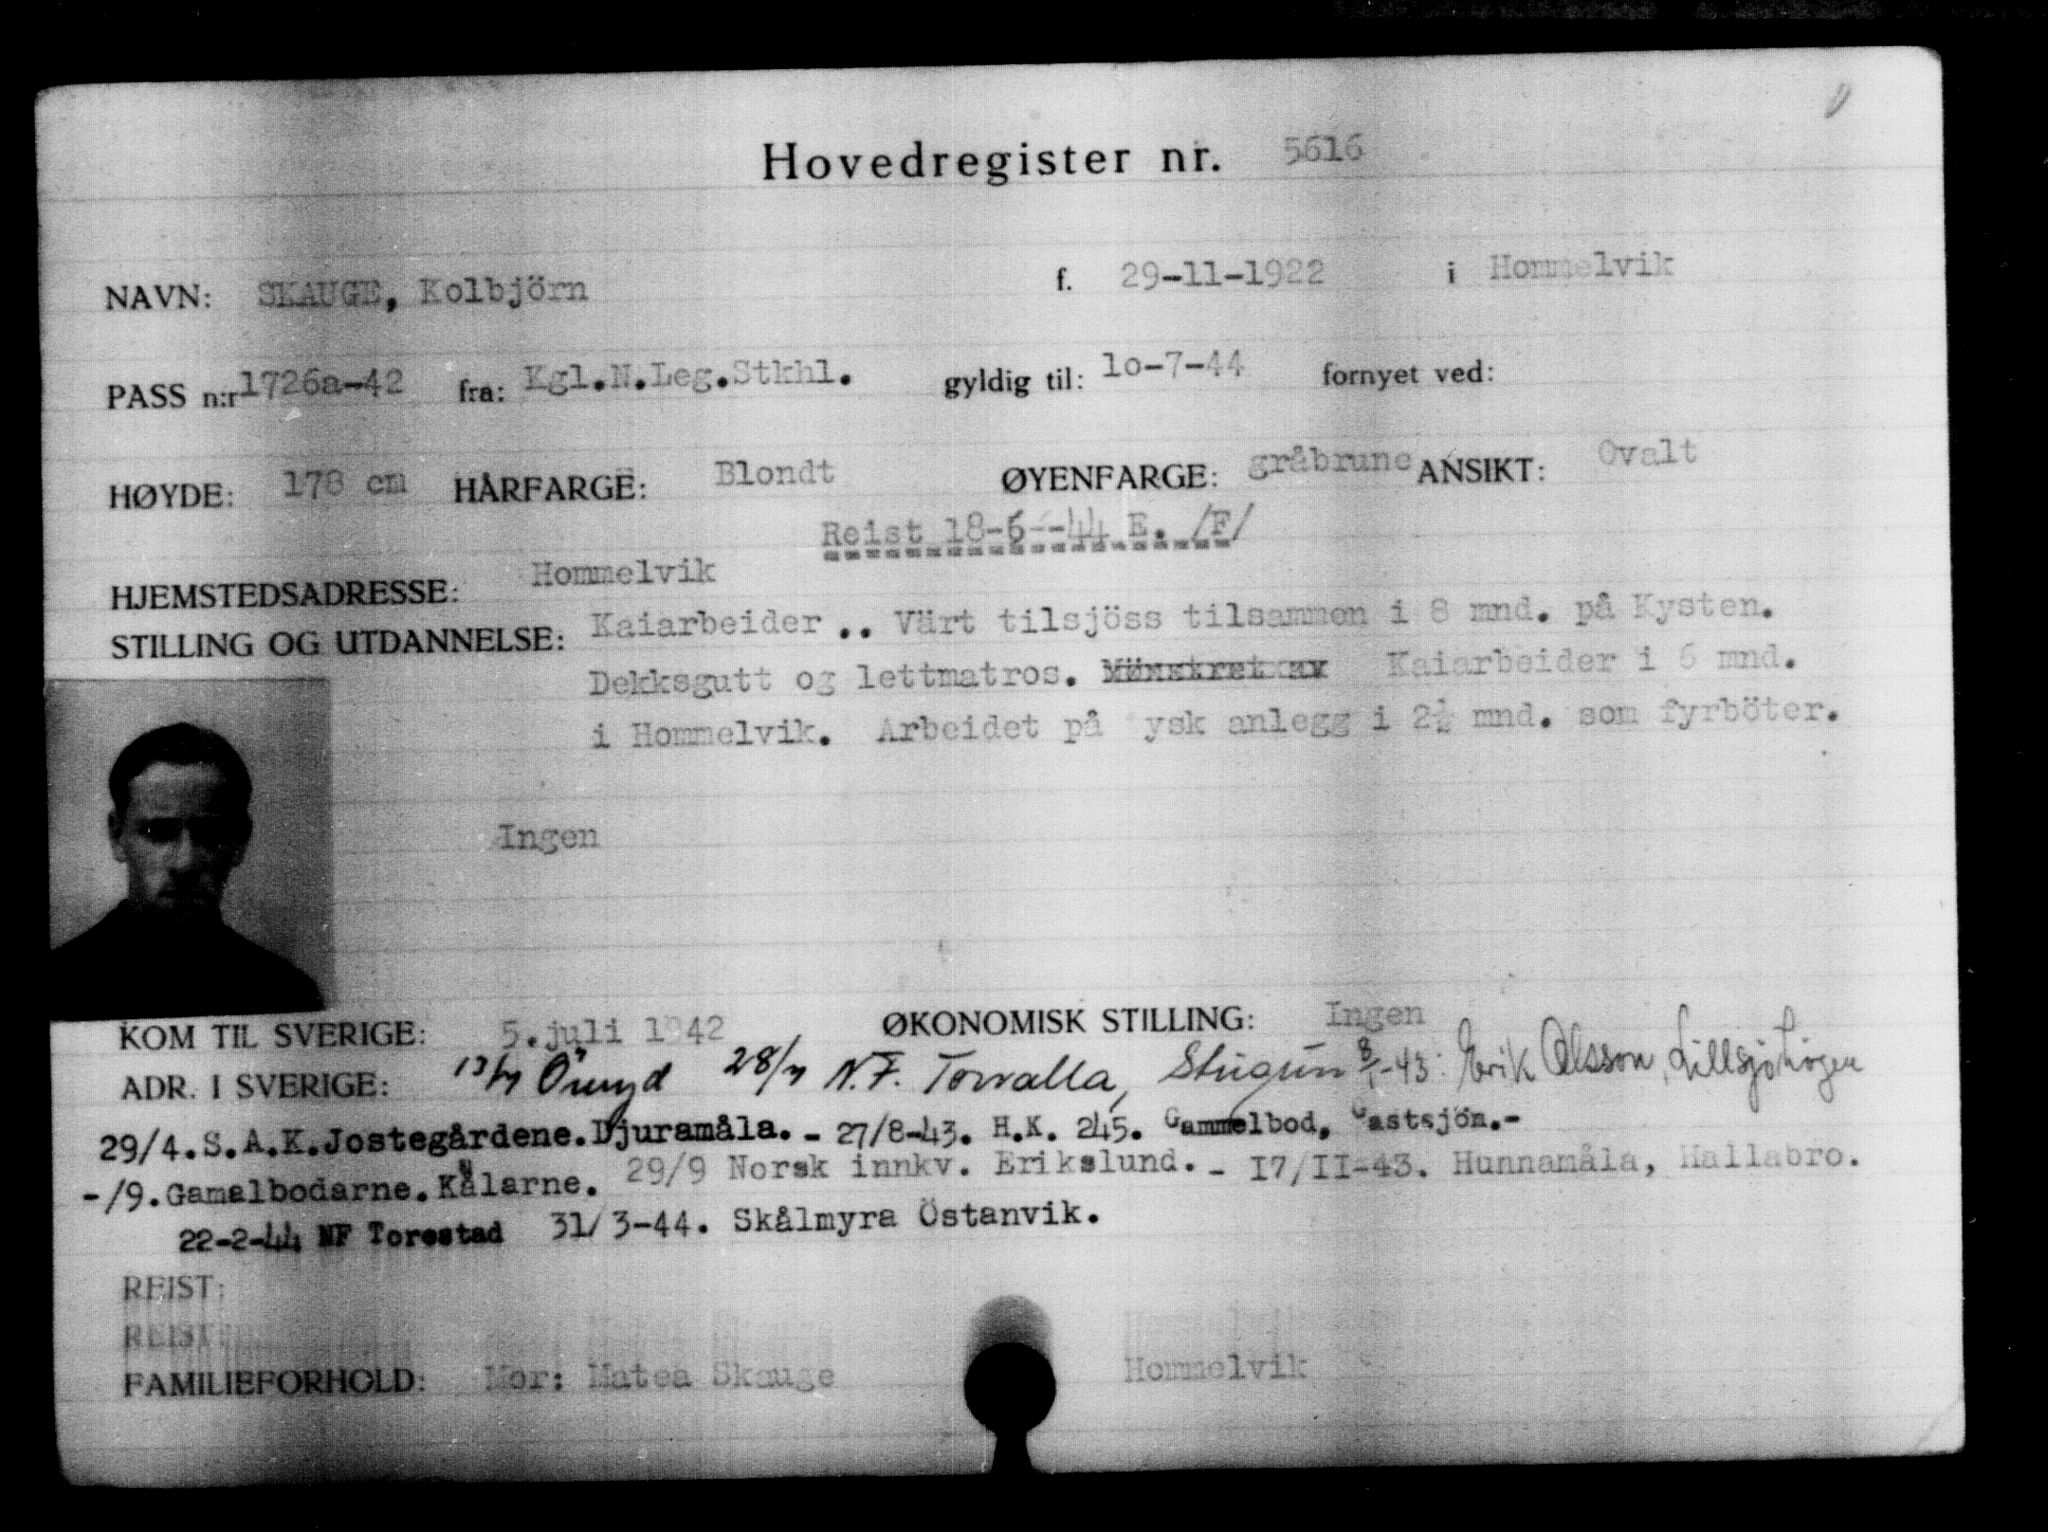 Hovedregister nr. 5616
NAVN: SKAUGE, Kolbjörn f. 29-11-1922 i Hommelvik
PASS n:r 1726a-42 fra: Kgl.N.Leg.Stkhl. gyldig til: 1o-7-44 fornyet ved:
HØYDE: 178 cm HÅRFARGE: Blondt ØYENFARGE: gråbrune ANSIKT: Ovalt
Reist 18-6-44 E. /F/
HJEMSTEDSADRESSE: Hommelvik
STILLING OG UTDANNELSE: Kaiarbeider .. Värt tilsjöss tilsammen i 8 mnd. på Kysten.
Dekksgutt og lettmatros. Kaiarbeider i 6 mnd.
i Hommelvik. Arbeidet på tysk anlegg i 2½ mnd. som fyrböter.
Ingen
KOM TIL SVERIGE: 5.juli 1942 ØKONOMISK STILLING: Ingen
ADR. I SVERIGE: 13/7 Öreryd 28/7 N.F. Torvalla, Stugun 8/1-43: Erik Olsson, Lillsjöhögen
29/4.S.A.K.Jostegårdene.Djuramåla.- 27/8-43. H.K. 245. Gammelbod, Gastsjön.-
-/9.Gamalbodarne.Kälarne. 29/9 Norsk innkv. Erikslund.- 17/11-43. Hunnamåla, Hallabro.
22-2-44 NF Torestad 31/3-44. Skålmyra Östanvik.
REIST:
REIST:
FAMILIEFORHOLD: Mor: Matea Skauge Hommelvik